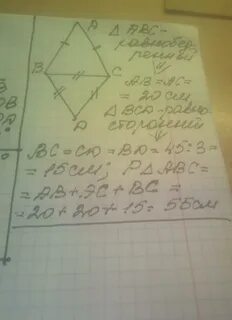 A
Δ ABC -
равнобед
ренный
B
C
AB = AC =
= 20 см
Δ BCD - равно
сторонний
D
BC = CD = BD = 45 : 3 =
= 15 см; P Δ ABC =
= AB + AC + BC =
= 20 + 20 + 15 = 55 см